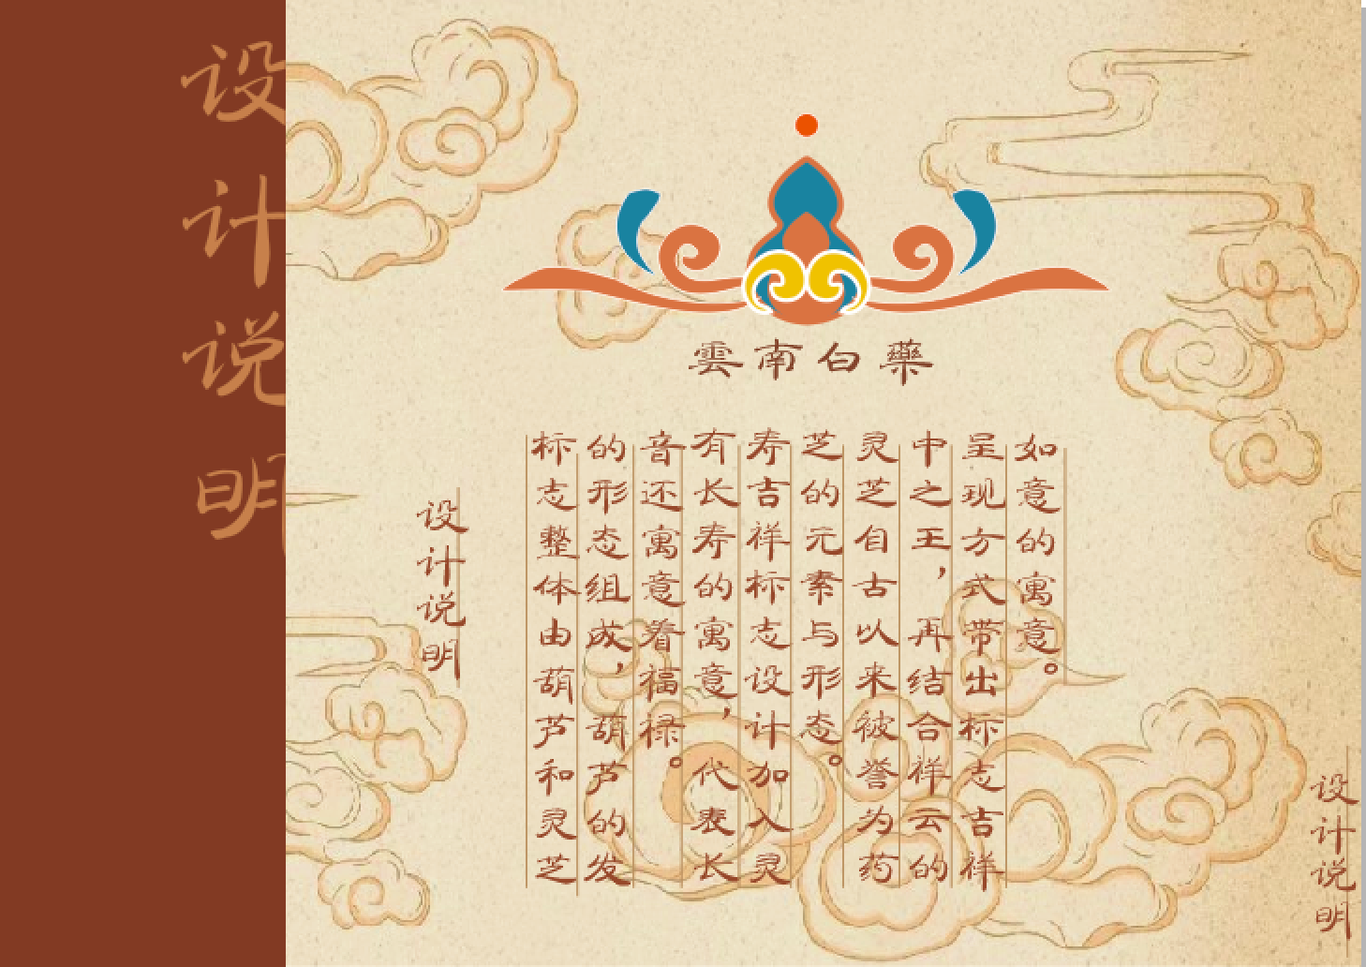 设计说明
雲南白藥
设计说明
标志整体由葫芦和灵芝
的形态组成，葫芦的发
音还寓意着福禄。
有长寿的寓意，代表长
寿吉祥标志设计加入灵
芝的元素与形态。
灵芝自古以来被誉为药
中之王，再结合祥云的
呈现方式带出标志吉祥
如意的寓意。
设计说明